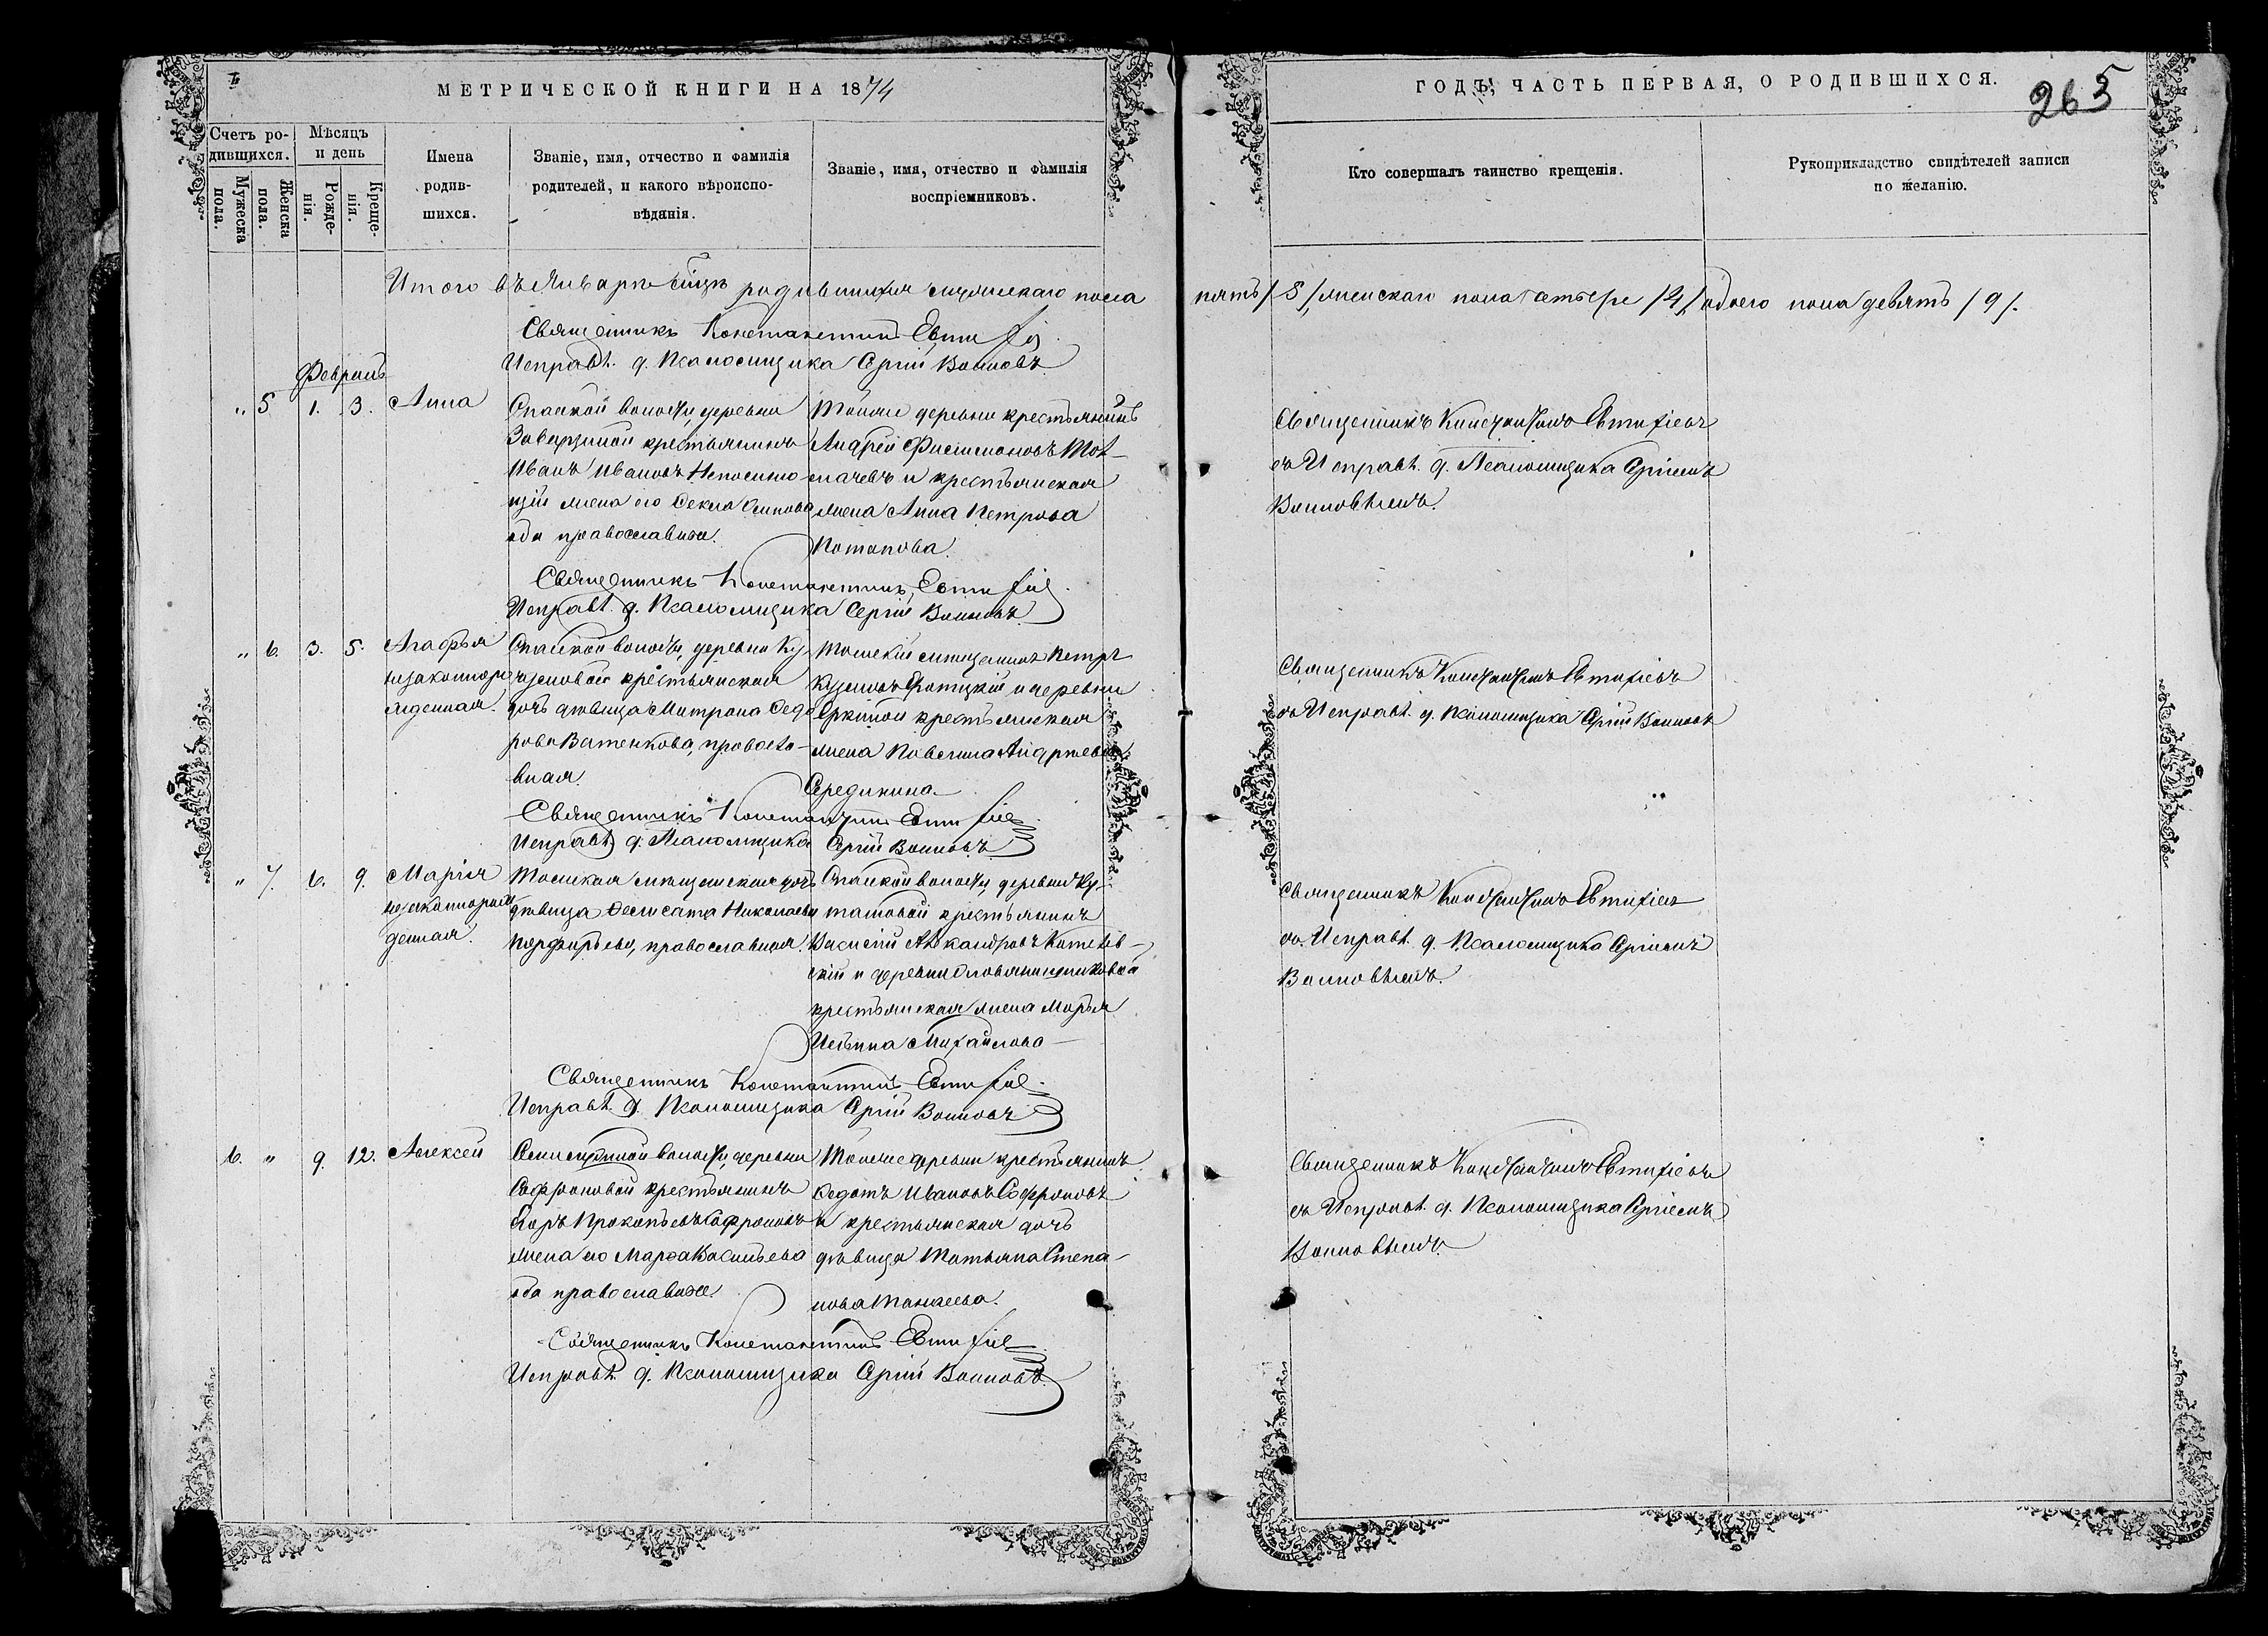 МЕТРИЧЕСКОЙ КНИГИ НА 1874
ГОДЪ, ЧАСТЬ ПЕРВАЯ, О РОДИВШИХСЯ.
265
Счетъ ро-
дившихся.
Мужеска
пола.
Женска
пола.
Мѣсяцъ
и день
Рожде-
нія.
Креще-
нія.
Имена
родив-
шихся.
Званіе, имя, отчество и фамилія
родителей, и какого вѣроиспо-
вѣданія.
Званіе, имя, отчество и фамилія
воспріемниковъ.
Кто совершалъ таинство крещенія.
Рукоприкладство свидѣтелей записи
по желанію.
Итого въ Январѣ родившихся мужескаго пола пять /5/, женскаго пола четыре /4/, обоего пола девять /9/.
Священникъ Константинъ Евтихіев
Исправл. д. Псаломщика Сергій Воиновъ
Февраль
" 5 1. 3. Анна
Спаской волости, деревни
Заварзиной крестьянинъ
Иванъ Ивановъ
жена его Ѳекла
оба православные.
Тойже деревни крестьянинъ
Андрей Филимоновъ Тол-
мачевъ и крестьянская
жена Анна Петрова
Потапова.
Священникъ Константинъ Евтихіевъ
съ Исправл. д. Псаломщика Сергіемъ
Воиновымъ.
Священникъ Константинъ Евтихіев
Исправл. д. Псаломщика Сергій Воиновъ
" 6. 3. 5. Агафья
незаконнорож-
денная.
Спаской волости, деревни
крестьянская
дочь дѣвица Матрона Ѳедо-
рова Ватенкова, правосла-
вная.
Томскій мѣщанинъ Петръ
Кузминъ и деревни
крестьянская
жена Андреева
Середнина
Священникъ Константинъ Евтихіевъ
съ Исправл. д. Псаломщика Сергій Воиновъ
Священникъ Константинъ Евтихіев
Исправл. д. Псаломщика Сергій Воиновъ
" 7. 6. 9. Марія
незаконнорож-
денная.
Томская мѣщанская дочь
дѣвица Николаева
Порфирьева, православная.
Спаской волости, деревни
крестьянинъ
Василій Александровъ
и деревни
крестьянская жена Марья
Ильина Михайлова
Священникъ Константинъ Евтихіевъ
съ Исправл. д. Псаломщика Сергіемъ
Воиновымъ.
Священникъ Константинъ Евтихіев
Исправл. д. Псаломщика Сергій Воиновъ
6. " 9. 12. Алексѣй
Семилужной волости, деревни
Софроновой крестьянинъ
Егоръ Прокопьевъ Софроновъ
жена его Марѳа Васильева
оба православные
Тойже деревни крестьянинъ
Ѳедотъ Ивановъ Софроновъ
и крестьянская дочь
дѣвица Татьяна Степа-
нова Танаева.
Священникъ Константинъ Евтихіевъ
съ Исправл. д. Псаломщика Сергіемъ
Воиновымъ.
Священникъ Константинъ Евтихіев
Исправл. д. Псаломщика Сергій Воиновъ